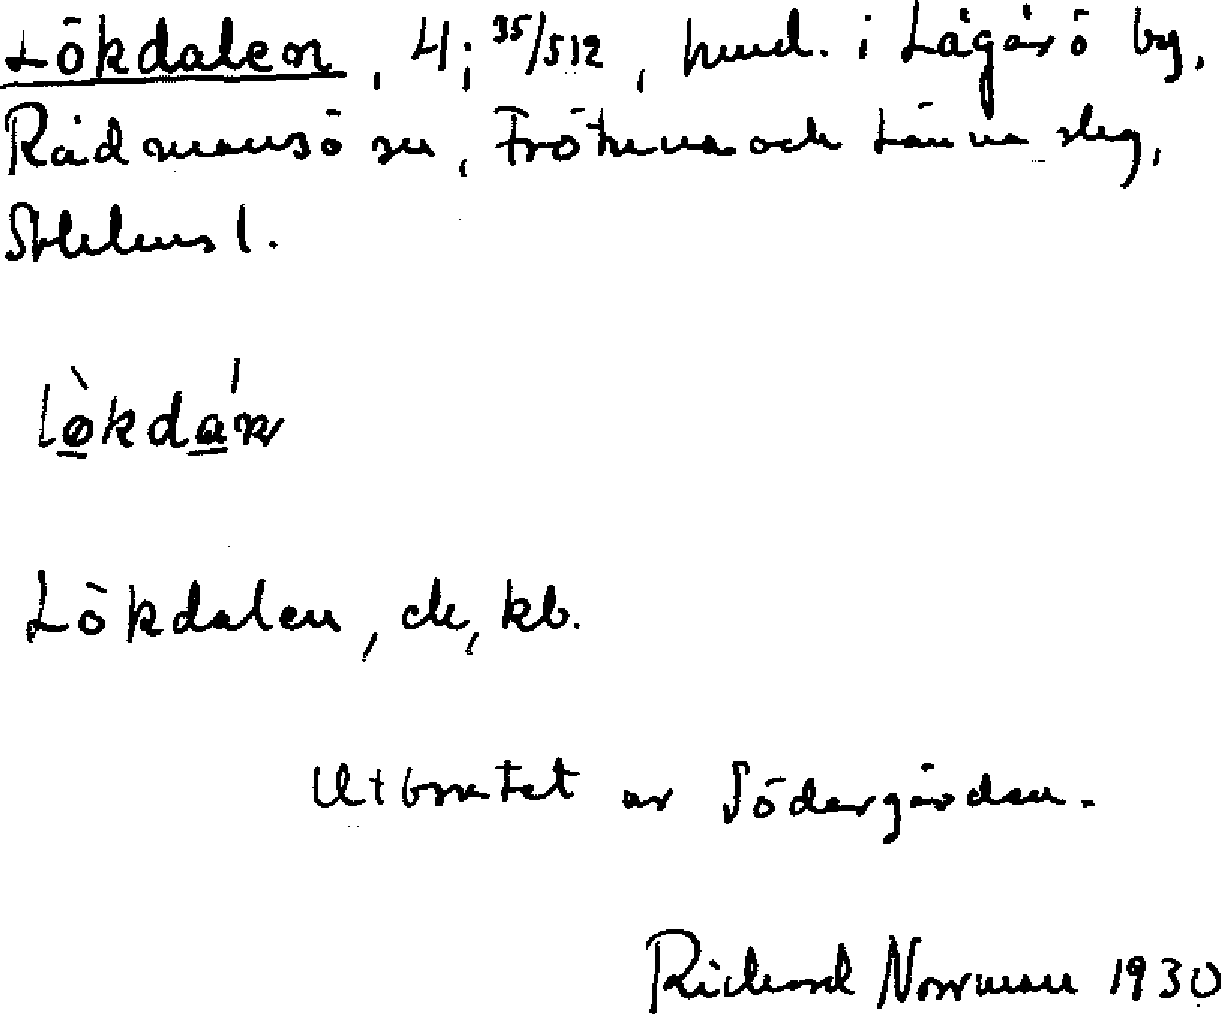 Lökdalen, 4; 35/512, hmd. i Lågarö by,
Rådmansö sn, Frötuna och Länna slg,
Sthlms l.
lø̀kdán
Lökdalen, de, kb.
Utbrutet ur Södergården.
Richard Norrman 1930